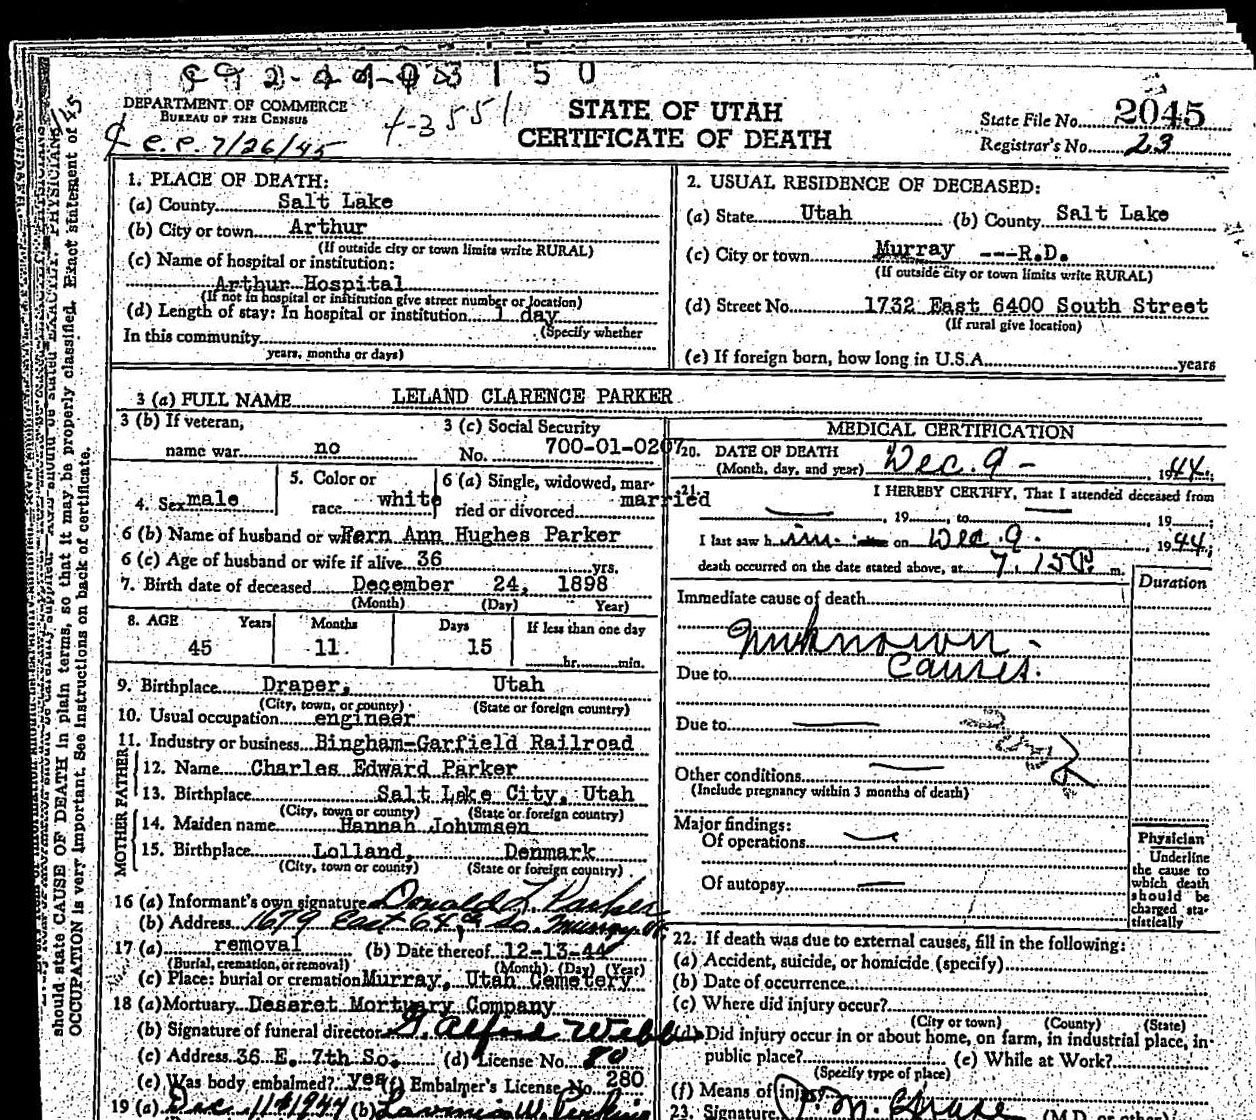 DEPARTMENT OF COMMERCE
BUREAU OF THE CENSUS
C.C. 7/26/45
STATE OF UTAH
CERTIFICATE OF DEATH
State File No. 2045
Registrar's No. 23
1. PLACE OF DEATH:
(a) County Salt Lake
(b) City or town Arthur
(If outside city or town limits write RURAL)
(c) Name of hospital or institution:
Arthur Hospital
(If not in hospital or institution give street number or location)
(d) Length of stay: In hospital or institution 1 day
(Specify whether
In this community
years, months or days)
2. USUAL RESIDENCE OF DECEASED:
(a) State Utah (b) County Salt Lake
(c) City or town Murray ---R.D.
(If outside city or town limits write RURAL)
(d) Street No. 1732 East 6400 South Street
(If rural give location)
(e) If foreign born, how long in U.S.A. years
3 (a) FULL NAME LELAND CLARENCE PARKER
3 (b) If veteran,
name war no
3 (c) Social Security
No. 700-01-0207
4. Sex male
5. Color or
race white
6 (a) Single, widowed, mar-
ried or divorced married
6 (b) Name of husband or wife Fern Ann Hughes Parker
6 (c) Age of husband or wife if alive 36 yrs.
7. Birth date of deceased December 24, 1898
(Month) (Day) Year)
8. AGE Years Months Days If less than one day
45 11 15 hr. min.
9. Birthplace Draper, Utah
(City, town, or county) (State or foreign country)
10. Usual occupation engineer
11. Industry or business Bingham-Garfield Railroad
FATHER
12. Name Charles Edward Parker
13. Birthplace Salt Lake City, Utah
(City, town or county) (State or foreign country)
MOTHER
14. Maiden name Hannah Johumsen
15. Birthplace Lolland, Denmark
(City, town or county) (State or foreign country)
16 (a) Informant's own signature Donald L Parker
(b) Address 1679 East 64th So. Murray Ut.
17 (a) removal (b) Date thereof 12-13-44
(Burial, cremation, or removal) (Month) (Day) (Year)
(c) Place: burial or cremation Murray, Utah Cemetery
18 (a) Mortuary Deseret Mortuary Company
(b) Signature of funeral director G. Alfred Webb
(c) Address 36 E. 7th So. (d) License No. 80
(e) Was body embalmed? yes (f) Embalmer's License No. 280
19 (a) Dec 11 1944 (b)
MEDICAL CERTIFICATION
20. DATE OF DEATH
(Month, day, and year) Dec. 9 - 1944
21. I HEREBY CERTIFY, That I attended deceased from
, 19 , to 19 ;
I last saw him on Dec 9. 1944;
death occurred on the date stated above, at 7.15 P. m.
Duration
Immediate cause of death
Unknown
Due to causes.
Due to
Other conditions
(Include pregnancy within 3 months of death)
Major findings:
Of operations
Of autopsy
Physician
Underline
the cause to
which death
should be
charged sta-
tistically
22. If death was due to external causes, fill in the following:
(a) Accident, suicide, or homicide (specify)
(b) Date of occurrence
(c) Where did injury occur?
(City or town) (County) (State)
(d) Did injury occur in or about home, on farm, in industrial place, in
public place? (e) While at Work?
(Specify type of place)
(f) Means of injury
23. Signature (M.D. or other)
should state CAUSE OF DEATH in plain terms, so that it may be properly classified. Exact statement of
OCCUPATION is very important. See instructions on back of certificate.